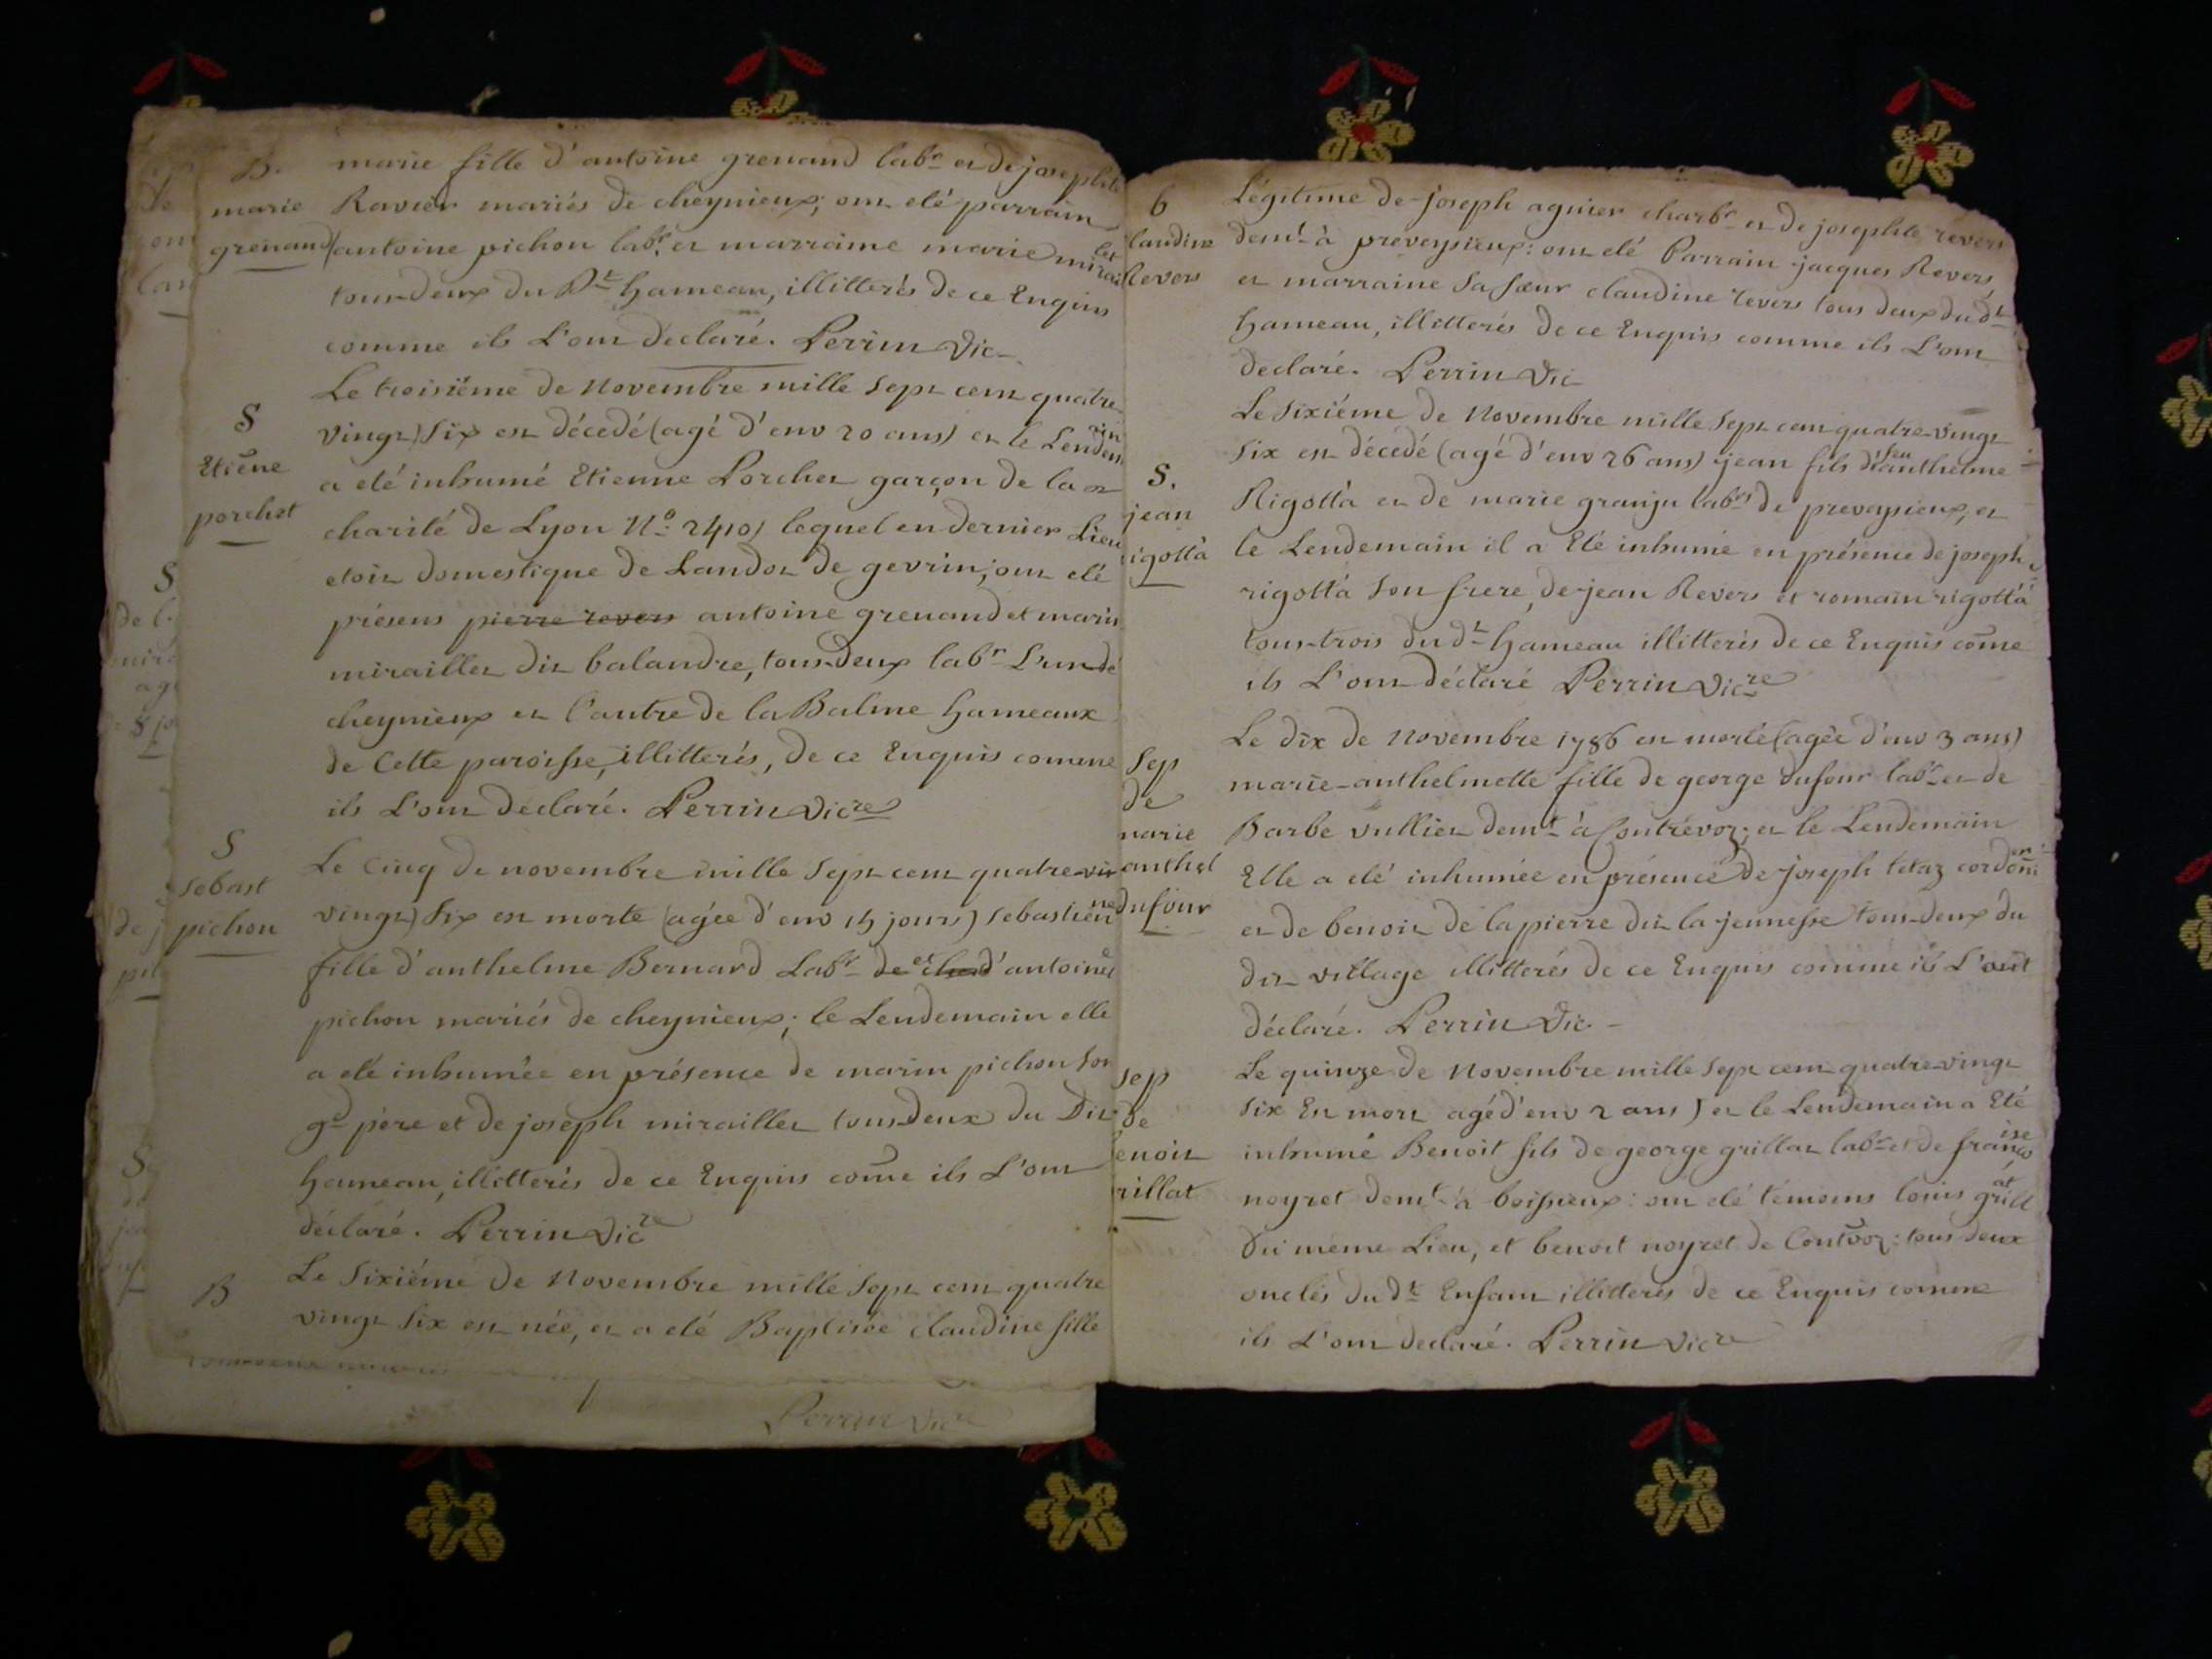 B.
marie
grenand
marie fille d'antoine grenand labr et de josephte
Ravier mariés de cheynieux; ont eté parrain
antoine pichon labr. et marraine marie miraillet
tous deux du Dt hameau, illitterés de ce Enquis
comme ils L'ont declaré. Perrin Vic
S
Etiēne
porchet
Le troisiéme de Novembre mille Sept cent quatre
vingt) Six est décedé (agé d'env 20 ans) et le Lendemain
a eté inhumé Etienne Porchet garçon de la
charité de Lyon No. 2410) lequel en dernier Lieu
etoit domestique de Landoz de gevrin; ont eté
présens pierre revers antoine grenand et marin
miraillet dit balandre, tous deux labr L'un de
cheynieux et l'autre de la Balme hameaux
de Cette paroisse, illitterés, de ce Enquis comme
ils L'ont declaré. Perrin Vicre
S
sebast
pichon
Le Cinq de novembre mille Sept cent quatre
vingt) Six est morte (agée d'env 15 jours) sebastienne
fille d'anthelme Bernard Labr et d'antoinete
pichon mariés de cheynieux; le Lendemain elle
a eté inhumée en présence de marin pichon son
gd pere et de joseph miraillet tous deux du Dit
hameau, illitterés de ce Enquis cōme ils L'ont
déclaré. Perrin Vicre
B
Le Sixiéme de Novembre mille Sept cent quatre
vingt Six est née, et a eté Baptisée claudine fille
Perrin Vicre
6
laudine
Revers
Légitime de joseph agnier charbr et de josephte revers
demt à preveysieux: ont eté Parrain jacques Revers,
et marraine Sa sœur claudine revers tous deux du dt
hameau, illitterés de ce Enquis comme ils L'ont
declaré. Perrin Vic
S.
jean
igotta
Le Sixiéme de Novembre mille Sept cent quatre-vingt
Six est décedé (agé d'env 26 ans) jean fils de feu anthelme
Rigotta et de marie granju labrs de preveysieux, et
le Lendemain il a Eté inhumé en présence de joseph
rigotta Son frere, de jean Revers et romain rigotta
tous-trois du dt hameau illitterés de ce Enquis cōme
ils L'ont déclaré Perrin Vicre
Sep
de
marie
anthel
dufour
Le dix de Novembre 1786 est morte (agée d'env 3 ans)
marie-anthelmette fille de george dufour labr et de
Barbe vulliet demt à Contrevoz; et le Lendemain
Elle a eté inhumée en présence de joseph letaz cordonier
et de benoit de la pierre dit la jeunesse tous-deux du
dit village illitterés de ce Enquis comme ils L'ont
déclaré. Perrin Vic.
Sep
de
enoit
rillat
Le quinze de Novembre mille Sept cent quatre vingt
Six Est mort agé d'env 2 ans) et le Lendemain a Eté
inhumé Benoit fils de george grillat labr et de françoise
noyret demt à boissieux: ont eté témoins louis grillat
du même Lieu, et benoit noyret de Contvoz: tous deux
oncles du dt Enfant illitterés de ce Enquis comme
ils L'ont declaré. Perrin Vicre